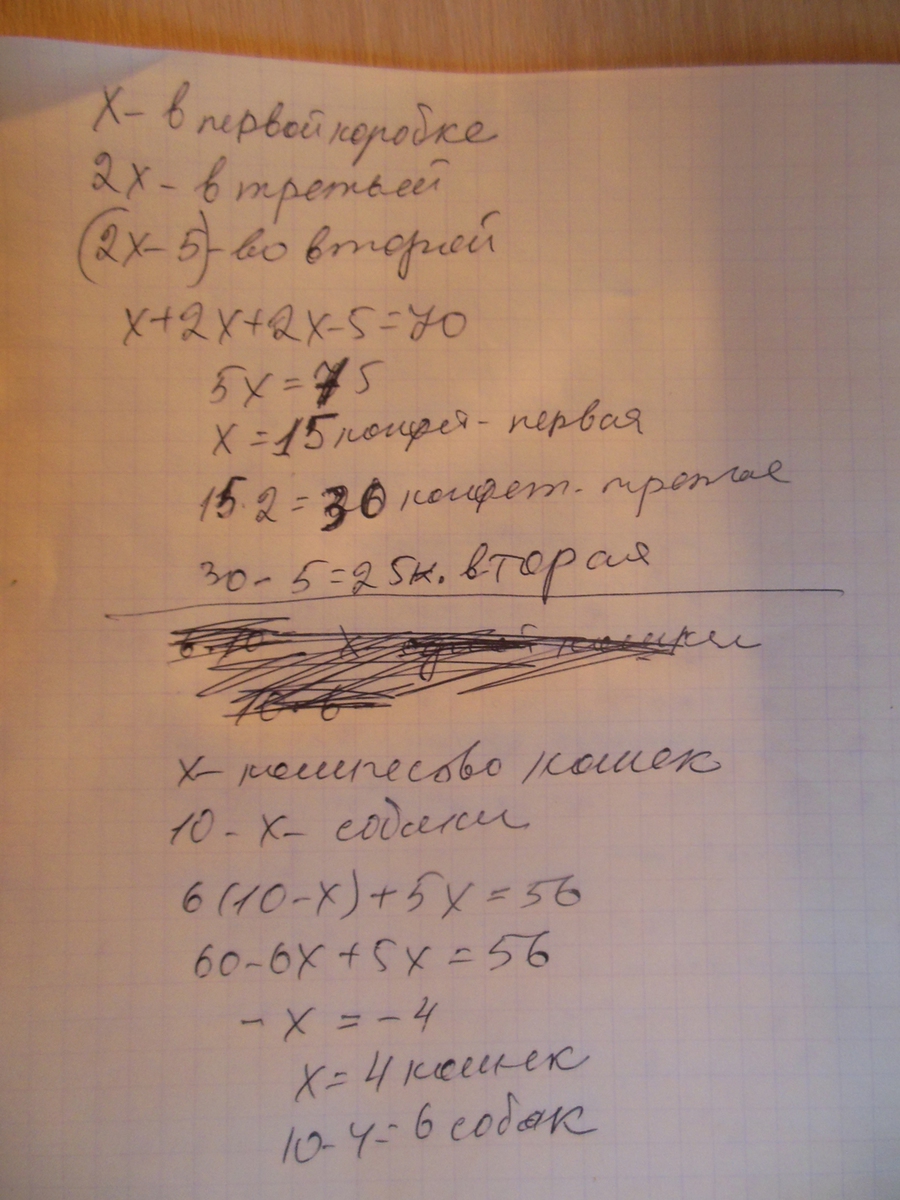 x - в первой коробке
2x - в третьей
(2x - 5) - во второй
x + 2x + 2x - 5 = 70
5x = 75
x = 15 конфет - первая
15 · 2 = 30 конфет - третья
30 - 5 = 25 к. вторая
x - количесово кошек
10 - x - собаки
6(10 - x) + 5x = 56
60 - 6x + 5x = 56
- x = - 4
x = 4 кошек
10 - 4 = 6 собак